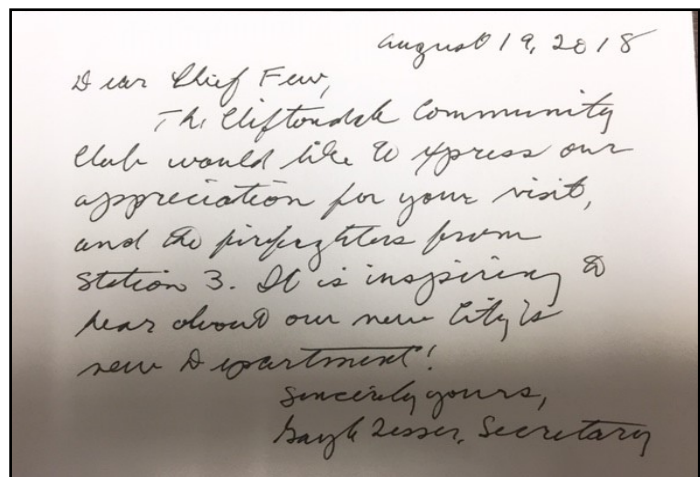 August 19, 2018
Dear Chief Few,
The Cliftondale Community
Club would like to express our
appreciation for your visit,
and the firefighters from
Station 3. It is inspiring to
hear about our new City's
new Department!
Sincerely yours,
Gayle Lesser, Secretary